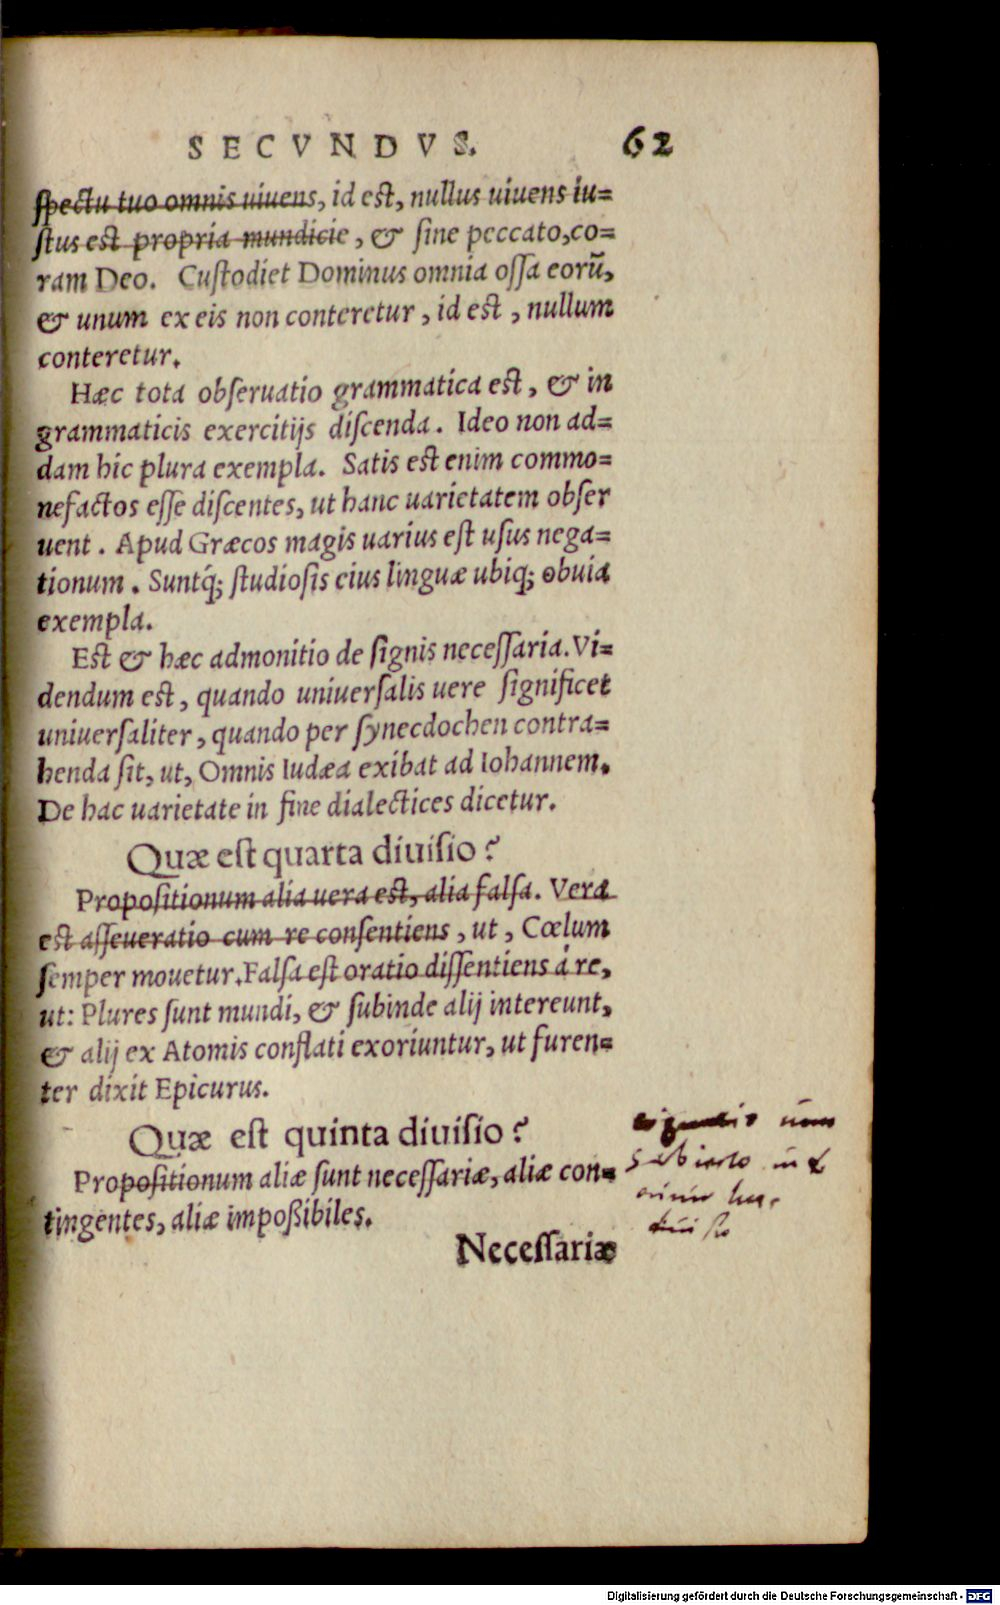 SECVNDVS. 62
ſpectu tuo omnis uiuens, id est, nullus uiuens iu=
ſtus est propria mundicie, & ſine peccato, co=
ram Deo. Cuſtodiet Dominus omnia oſſa eorũ,
& unum ex eis non conteretur, id est, nullum
conteretur.
Hæc tota obſeruatio grammatica est, & in
grammaticis exercitijs diſcenda. Ideo non ad=
dam hic plura exempla. Satis est enim commo=
nefactos eſſe diſcentes, ut hanc uarietatem obſer
uent. Apud Græcos magis uarius eſt uſus nega=
tionum. Suntq́; ſtudioſis eius linguæ ubiq; obuia
exempla.
Est & hæc admonitio de ſignis neceſſaria. Vi=
dendum est, quando uniuerſalis uere ſignificet
uniuerſaliter, quando per ſynecdochen contra=
henda ſit, ut, Omnis Iudæa exibat ad Iohannem.
De hac uarietate in fine dialectices dicetur.
Quæ eſt quarta diuiſio?
Propoſitionum alia uera est, alia falſa. Vera
est aſſeueratio cum re conſentiens, ut, Cœlum
ſemper mouetur. Falſa eſt oratio diſſentiens à re,
ut: Plures ſunt mundi, & ſubinde alij intereunt,
& alij ex Atomis conflati exoriuntur, ut furen=
ter dixit Epicurus.
Quæ eſt quinta diuiſio?
Propoſitionum aliæ ſunt neceſſariæ, aliæ con=
tingentes, aliæ impoßibiles.
Neceſſariæ
Digitalisierung gefördert durch die Deutsche Forschungsgemeinschaft - DFG